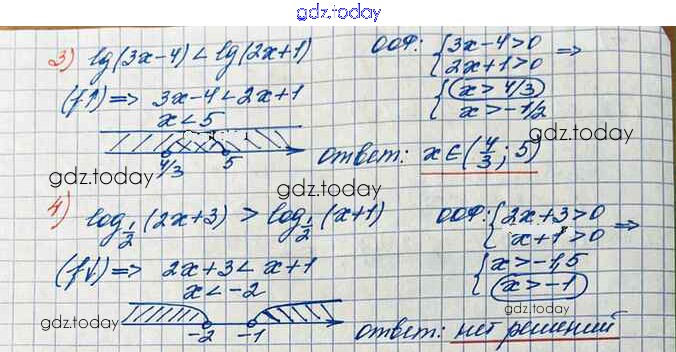 gdz.today
3) lg(3x-4) < lg(2x+1) ООФ: {3x-4>0 =>
{2x+1>0
(f↑) => 3x-4<2x+1 {x>4/3
x<5 x>-1/2
gdz.today
4/3 5 ответ: x∈(4/3; 5)
gdz.today
gdz.today
4) log_{1/2}(2x+3) > log_{1/2}(x+1) ООФ: {2x+3>0 =>
x+1>0
gdz.today
(f↓) => 2x+3<x+1 {x>-1,5
x<-2 x>-1
gdz.today
gdz.today
-2 -1 ответ: нет решений